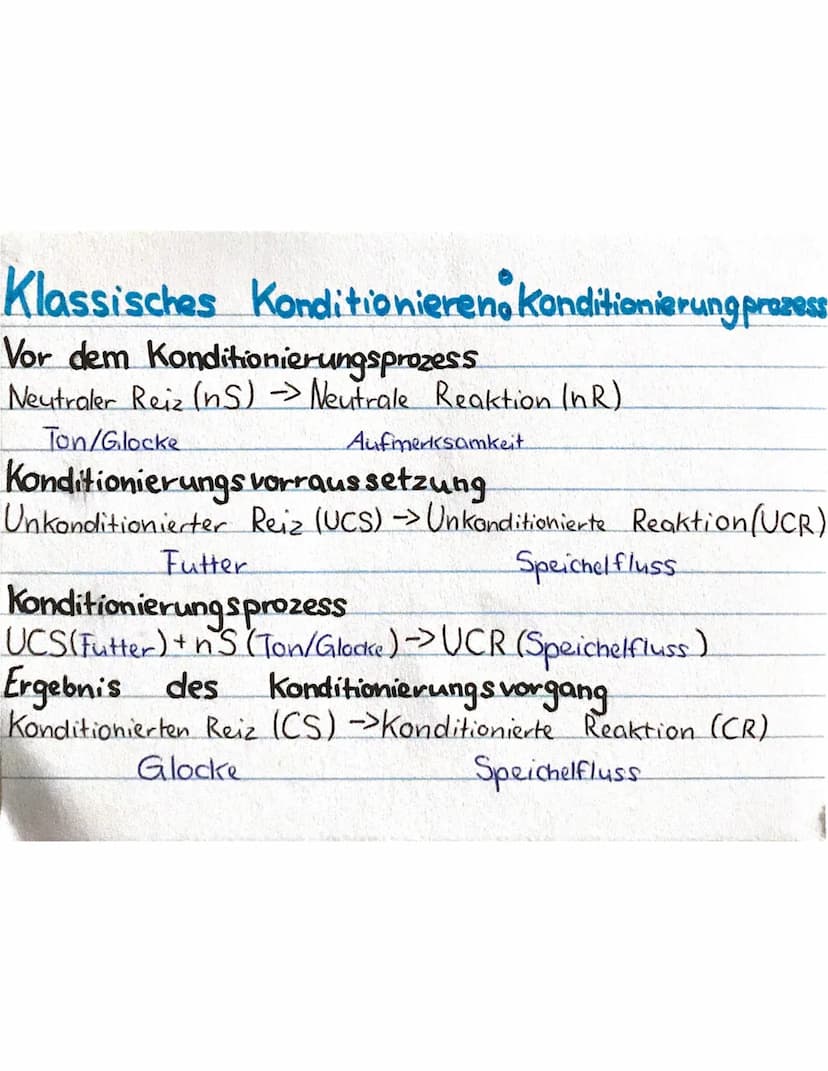 Klassisches Konditionieren: Konditionierungprozess
Vor dem Konditionierungsprozess
Neutraler Reiz (nS) -> Neutrale Reaktion (nR)
Ton/Glocke Aufmerksamkeit
Konditionierungsvorraussetzung
Unkonditionierter Reiz (UCS) -> Unkonditionierte Reaktion (UCR)
Futter Speichelfluss
Konditionierungsprozess
UCS (Futter) + nS (Ton/Glocke) -> UCR (Speichelfluss)
Ergebnis des Konditionierungsvorgang
Konditionierten Reiz (CS) -> Konditionierte Reaktion (CR)
Glocke Speichelfluss